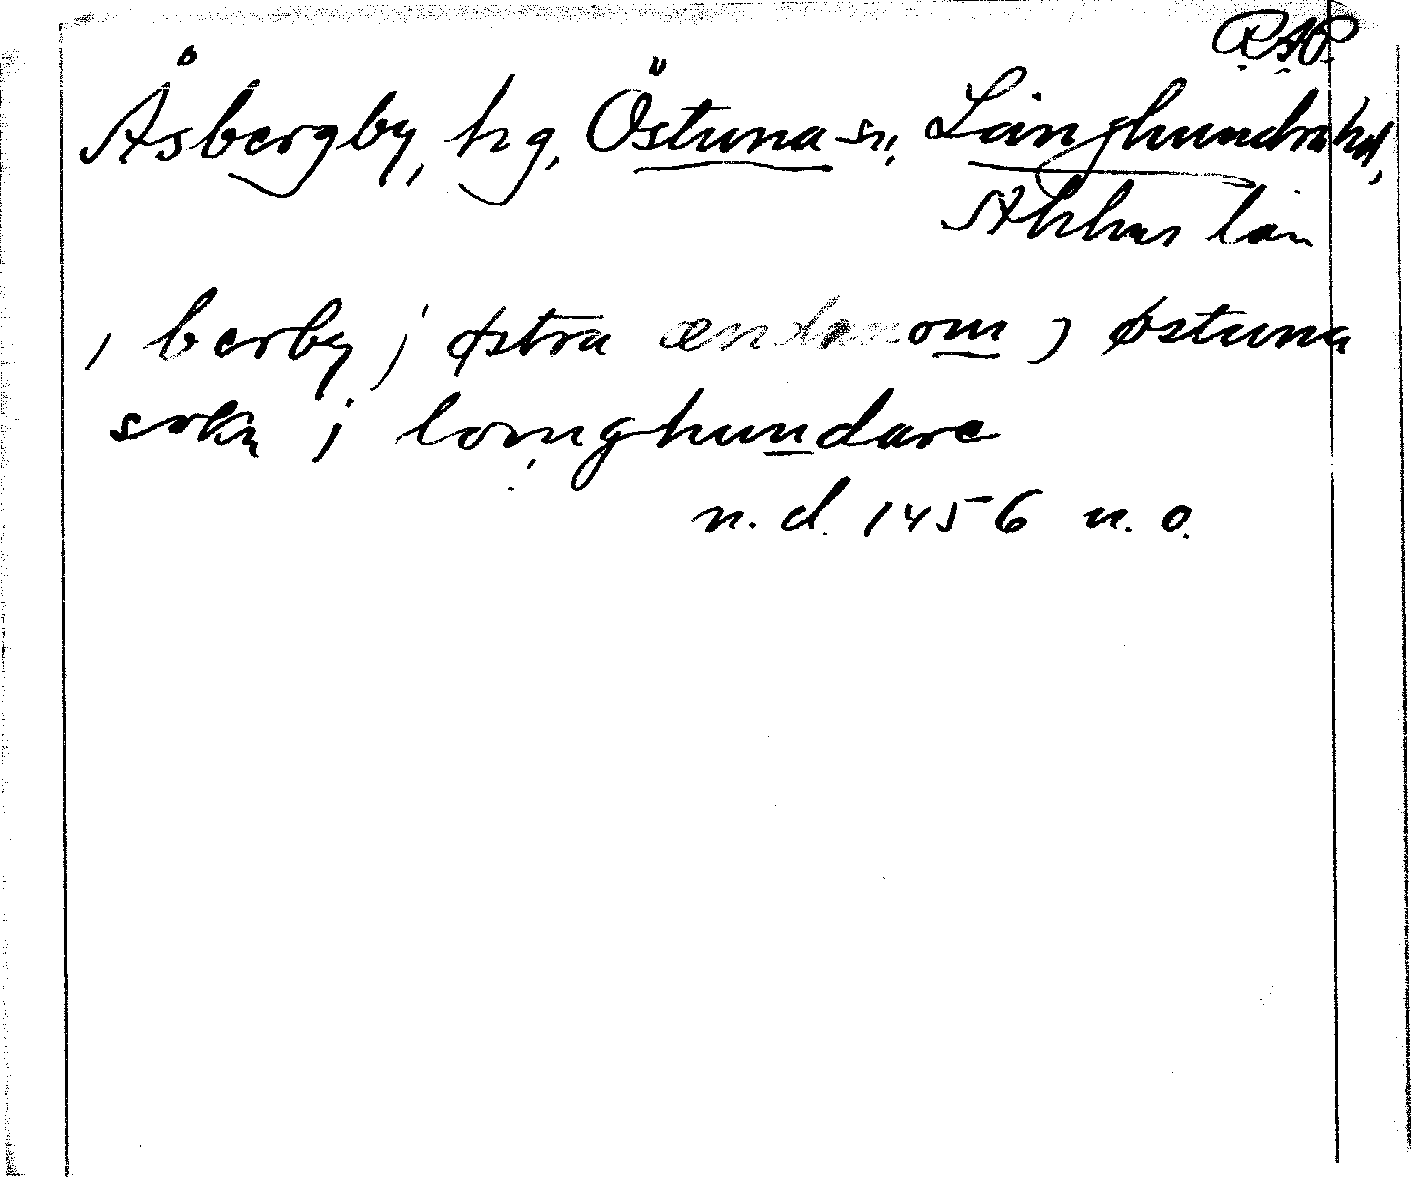 RAP.
Åsbergby, hg, Östuna sn, Långhundra hd,
Sthlms län
i berby j østra ændanom j østuna
sokn j longhundare
n.d. 1456 u.o.